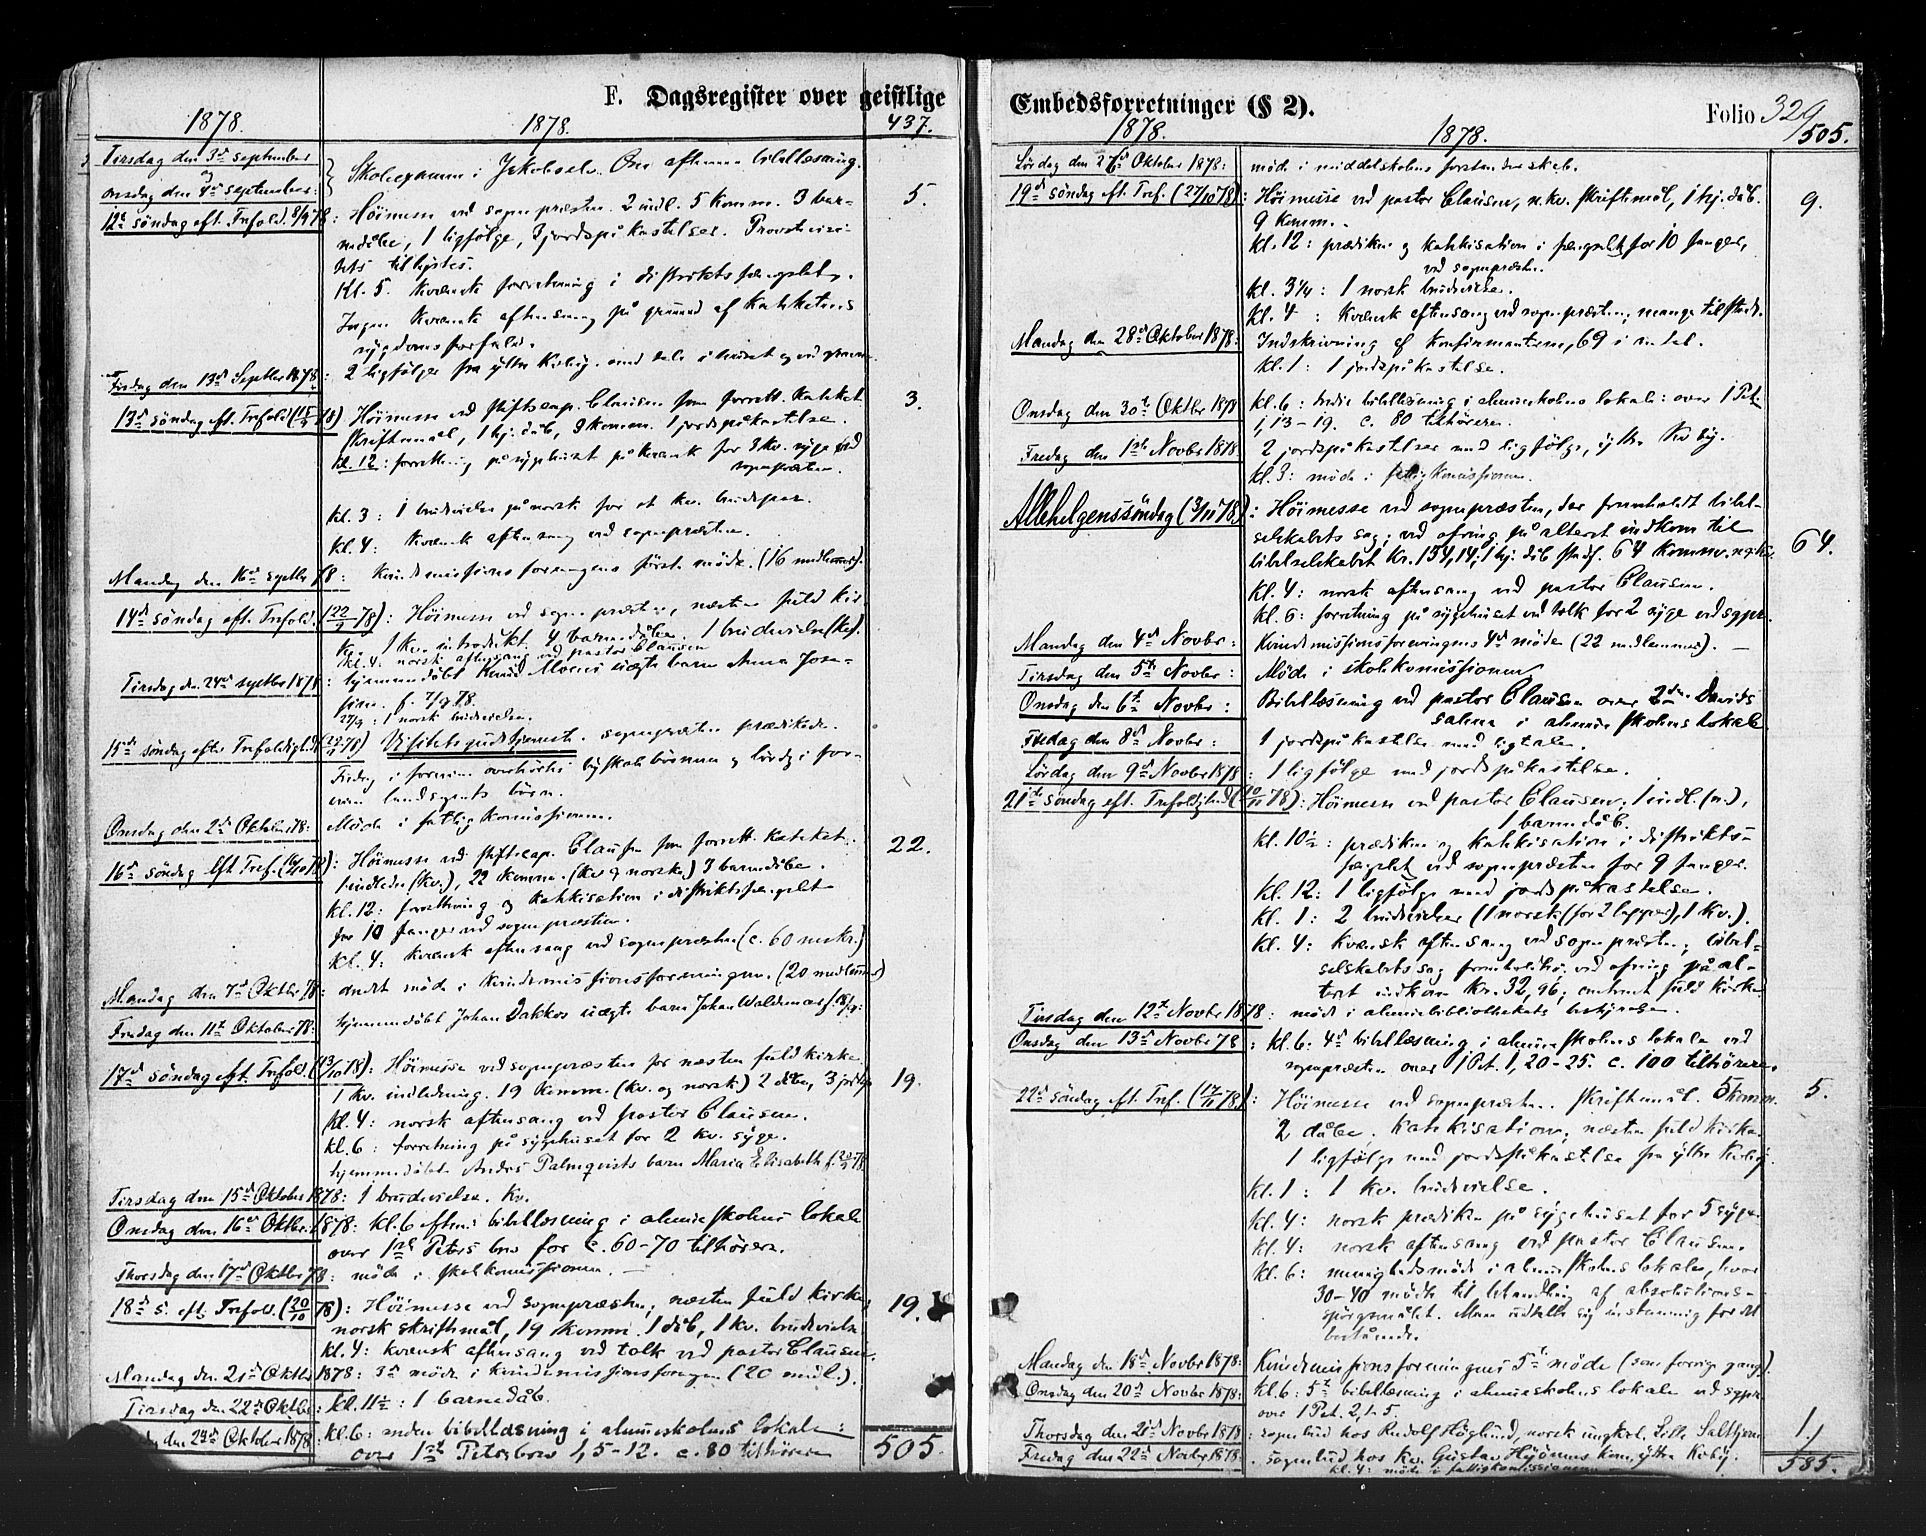 F. Dagsregister over geistlige
1878. 1878. 437.
Tirsdag den 3die september
onsdag den 4de september: Skoleexamen i Jakobselv. Om aftenen bibellæsning.
12te søndag eft. Trefold. 8/9 78: Höimesse ved sognepræsten. 2 indl. 5 komm. 3 bar- 5.
nedåbe, 1 ligfølge, 3 jordspåkastelser.
Kl. 5. Kvænsk forretning i distriktsfængslet.
Ingen kvænsk aftensang på grund af kateketens
sygdomsforfald.
Fredag den 13de Septber 1878: 2 ligfølger fra ýttre Kiby
13de søndag eft. Trefold (15/9 78) Höimesse ved stiftscap. Clausen som forrett. kateket 3.
skriftemaal, 1 hj. dåb, 3 komm. 1 jordspåkastelse.
kl. 12: forretning på sygehuset på kvænsk for 3 kv. syge ved
sognepræsten.
kl. 3: 1 brudevielse på norsk for et kv. brudepar.
kl. 4: kvænsk aftensang ved sognepræsten.
Mandag den 16de septbr 78: kvindemissionsforeningens første møde. (16 medlemmer).
14de søndag eft. Trefold. (22/9 78): Höimesse ved sognepræsten, næsten fuld kir-
ke. 1 kv. introdukt. 4 barnedåbe. 1 brudevielse (kv).
kl. 4: norsk aftensang ved pastor Clausen
Tirsdag den 24de septbr 1878: hjemmedøbt barn Anna Jose-
fine. f. 7/9 78.
27/9: 1 norsk brudevielse.
15de søndag efter Trefoldighed (29/9 78) Visitatsgudstjeneste. sognepræsten prædikede.
Fredag i forveien overhørtes byskolebörnen og lördag i for-
veien landsognets börn.
Onsdag den 2den Oktober 78: Møde i fattigkomissionen.
16de søndag eft Tref. (6/10 78): Höimesse ved stiftscap. Clausen som forrett. kateket. 22.
1 indledn (kv.), 22 komm. (kv og norske) 3 barnedåbe.
kl. 12: forretning og katekisation i distriktsfængslet
for 10 fanger ved sognepræsten.
kl. 4: kvænsk aftensang ved sognepræsten (c. 60 mskr.)
Mandag den 7de Oktbr 78: andet møde i kvindemissionsforeningen. (20 medlemmer)
Fredag den 11te Oktober 78: hjemmedöbt Johan Dakkos uægte barn Johan Waldemar
17de søndag eft. Trefold. (13/10 78): Höimesse ved sognepræsten for næsten fuld kirke
1 kv. indledning. 19 komm. (kv. og norsk.) 2 dåbe, 3 jordsp. 19.
kl. 4: norsk aftensang ved pastor Clausen.
kl. 6: forretning på sygehuset for 2 kv. syge.
hjemmedöbt Anders Palmqvists barn Maria Elisabeth
Tirsdag den 15de Oktober 1878: 1 brudevielse. kv.
Onsdag den 16de Oktbr. 1878: kl. 6 eftm: bibellæsning i almueskolens lokale
over 1ste Peters brev for c. 60-70 tilhørere.
Thorsdag den 17de Oktbr 78: møde i skolekomissionen.
18de s. eft. Trefold. (20/10 78): Höimesse ved sognepræsten, næsten fuld kirke, 19.
norsk skriftemål, 19 komm. 1 dåb, 1 kv. brudevielse
kl. 4: kvænsk aftensang ved tolk ved pastor Clausen.
Mandag den 21de Oktbr 1878: 3de møde i kvindemissionsforegen (20 mdl.).
Tirsdag den 22de Oktbr: kl. 11½: 1 barnedåb.
den Oktober 1878: kl. 6: anden bibellæsning i almueskolens lokale:
over 1ste Peters brev 1, 5-12. c. 80 tilhørere 505.
Embedsforretninger (§ 2). Folio 329
1878. 1878. 505.
Lördag den Oktober 1878: møde i middelskolens forstanderskab.
19de søndag eft. Tref. (27/10 78): Höimesse ved pastor Clausen, n. kv. skriftemål, 1 hj. dåb. 9.
9 komm.
kl. 12: prædiken og katekisation i fængslet for 10 fanger,
ved sognepræsten.
kl. 3¼: 1 norsk brudevielse.
kl. 4: Kvænsk aftensang ved sognepræsten; mange tilstede.
Mandag den 28de Oktober 1878: Indskrivning af konfirmanterne, 69 i antal.
kl. 1: 1 jordspåkastelse.
Onsdag den 30te Oktbr 1878 kl. 6: tredie bibellæsning i almueskolens lokale: over 1 Pet.
1, 13-19. c. 80 tilhørere.
Fredag den 1ste Novbr 1878 2 jordspåkastelser med ligfølge, ýttre Kiby.
kl. 3: møde i fattigkomissionen.
Allehelgenssöndag (3/11 78): Höimesse ved sognepræsten, der fremholdt bibel-
selskabets sag; ved ofring på alteret indkom til
bibelselskabet kr. 154,14; 1 hj. dåb stadf. 64 komm. n. og kv. 64.
kl. 4: norsk aftensang ved pastor Clausen.
kl. 6: forretning på sygehuset ved tolk for 2 syge ved sgpr.
Mandag den 4de Novbr: Kvindemissionsforeningens 4de møde (22 medlemmer).
Tirsdag den 5te Novbr: Møde i skolekomissionen
Onsdag den 6te Novbr: Bibellæsning ved pastor Clausen over 2den Davids
salme i almueskolens lokale
Fredag den 8de Novbr: 1 jordspåkastelse med ligtale.
Lördag den 9de Novbr 1878: 1 ligfølge med jordspåkastelse.
21de søndag eft. Trefoldighed (10/11 78): Höimesse ved pastor Clausen; 1 indl. (n.),
1 barnedåb.
kl. 10½: prædiken og katekisation i distrikts-
fængslet ved sognepræsten for 9 fanger.
kl. 12: 1 ligfølge med jordspåkastelse.
kl. 1: 2 brudevielser (1 norsk (for 2 lapper), 1 kv.).
kl. 4: Kvænsk aftensang ved sognepræsten; bibel-
selskabets sag fremholdtes; ved ofring på al-
teret indkom kr. 32,96; omtrent fuld kirke
Tirsdag den 12te Novbr 1878: møde i almuebibliothekets bestyrelse.
Onsdag den 13de Novbr 78: kl. 6: 4de bibellæsning i almueskolens lokale ved
sognepræsten over 1 Pet. 1, 20-25. c. 100 tilhørere.
22de søndag eft. Tref. (17/11 78): Höimesse ved sognepræsten. skriftemål. 5 komm. 5.
2 dåbe. katekisation; næsten fuld kirke.
1 ligfølge med jordspåkastelse fra ýttre Kiby.
kl. 1: 1 kv. brudevielse.
kl. 4: norsk prædiken på sygehuset for 5 syge.
kl. 4: norsk aftensang ved pastor Clausen.
kl. 6: menighedsmøde i almueskolens lokale, hvor
30-40 mødte til behandling af absolutions-
spörgsmålet. Man udtalte sig enstemmig for det
bestående.
Mandag den 18de Novbr 1878: Kvindemissionsforeningens 5te møde (som forrige gang).
Onsdag den 20de Novbr 1878: kl. 6: 5te bibellæsning i almueskolens lokale ved sgpr.
over 1 Pet. 2, 1-5.
Thorsdag den 21de Novbr 1878: sognebud hos Rudolf Höglund, norsk ungkarl, Lille Saltjern 1.
Fredag den 22de Novbr 1878: sognebud hos kv. Gustav kone, ýttre Kiby.
kl. 4: møde i fattigkomissionen 585.